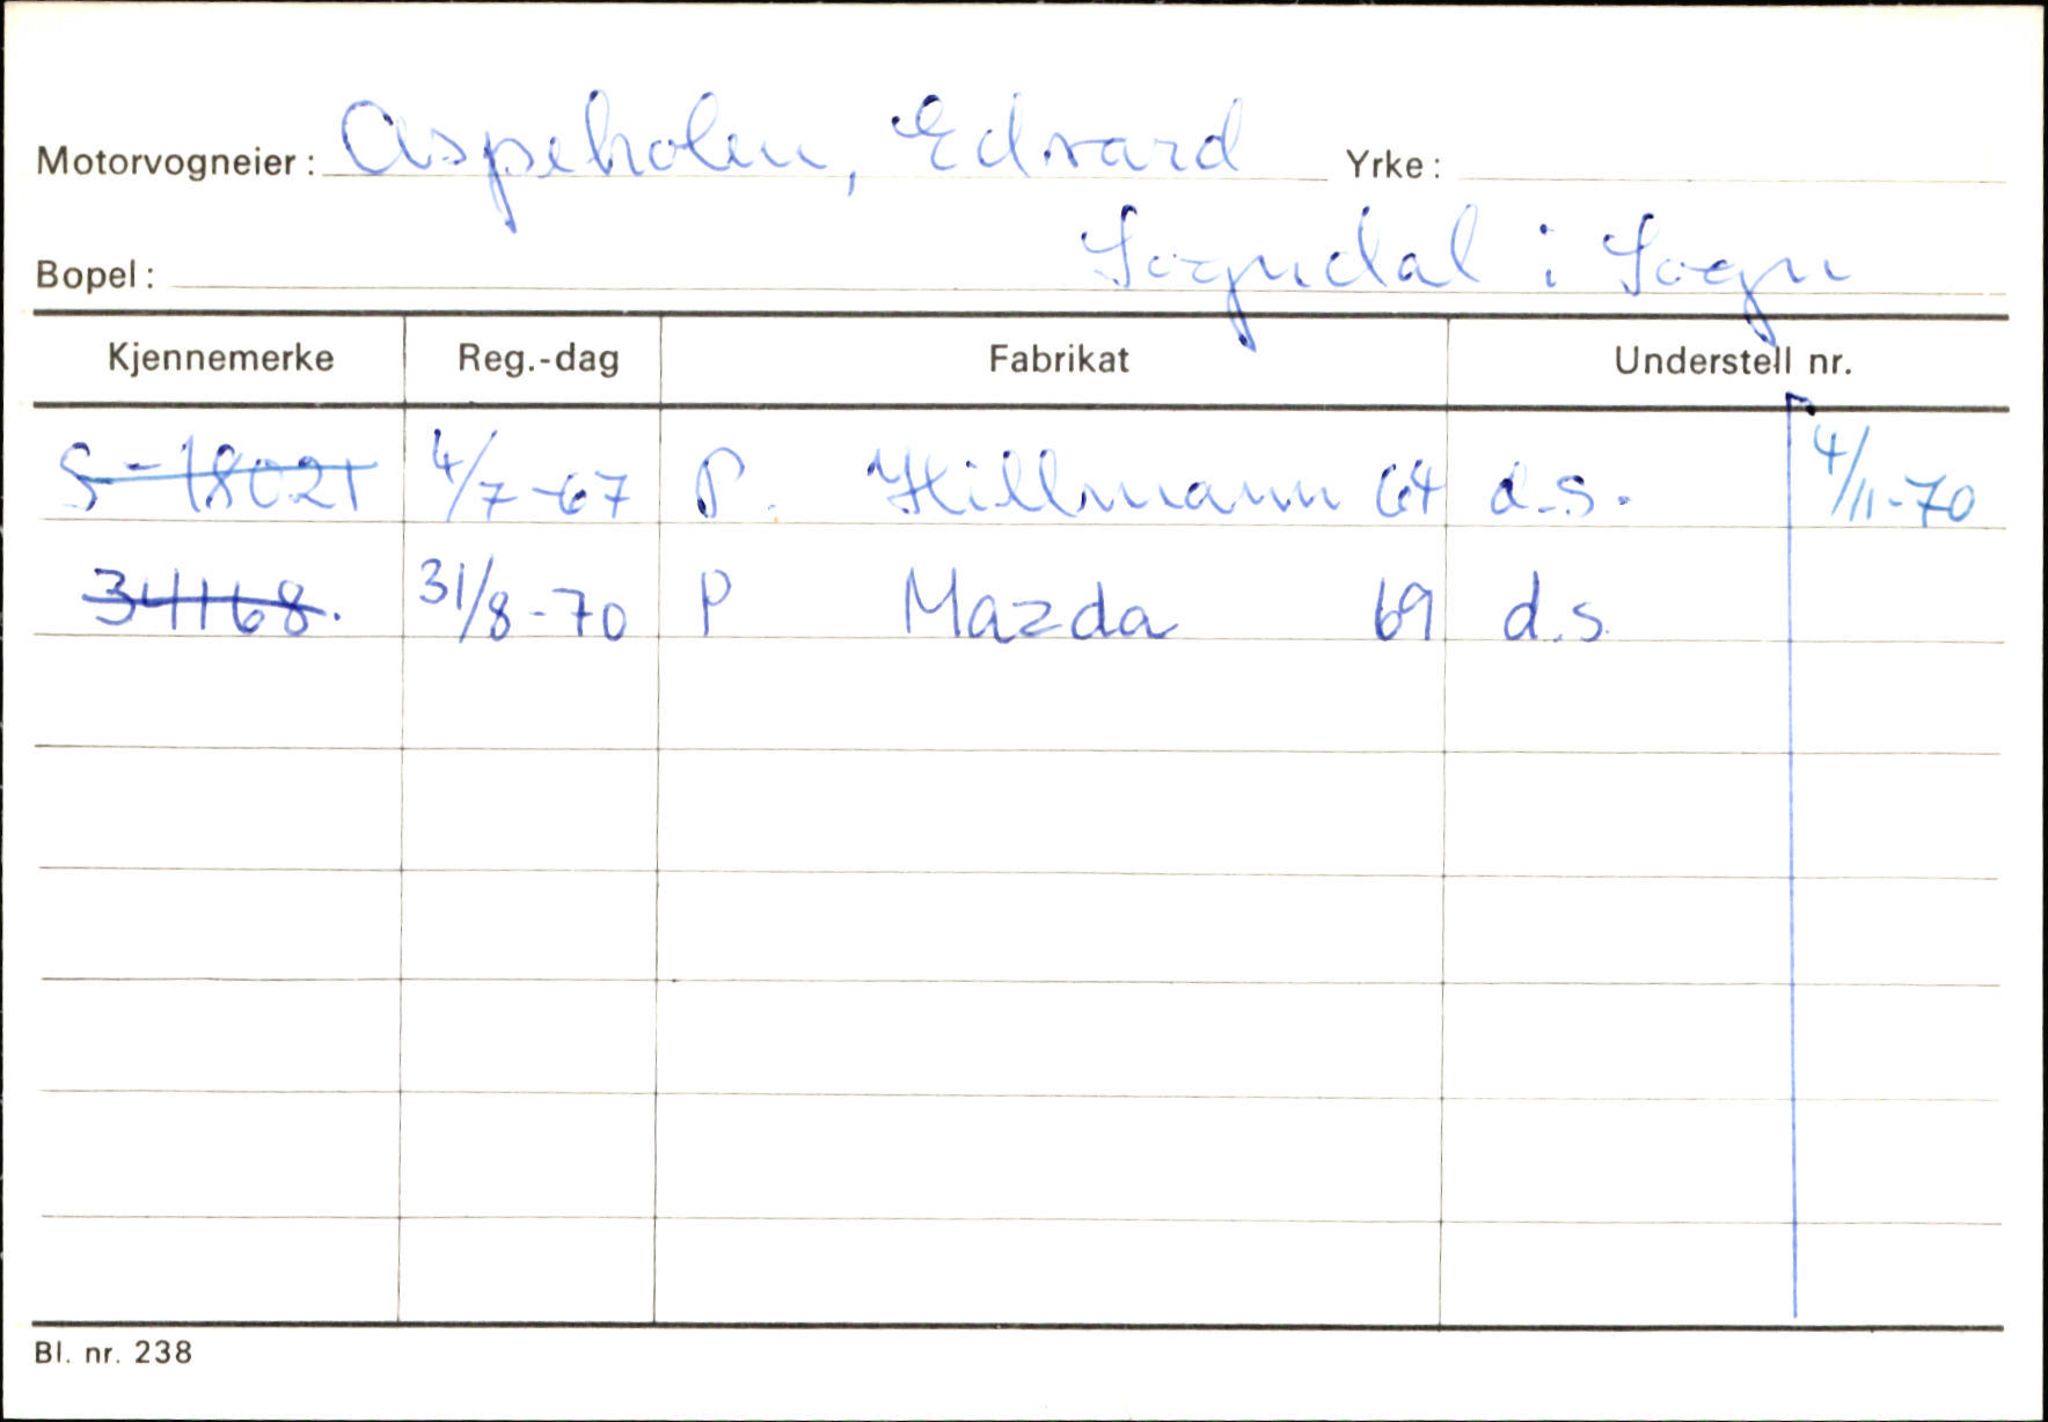 Motorvogneier: Aspeholen, Edvard Yrke:
Bopel: Sogndal i Sogn
Kjennemerke Reg.-dag Fabrikat Understell nr.
S-18021 4/7-67 P. Hillmann 64 d.s. 4/11-70
34168. 31/8-70 P Mazda 69 d.s.
Bl. nr. 238